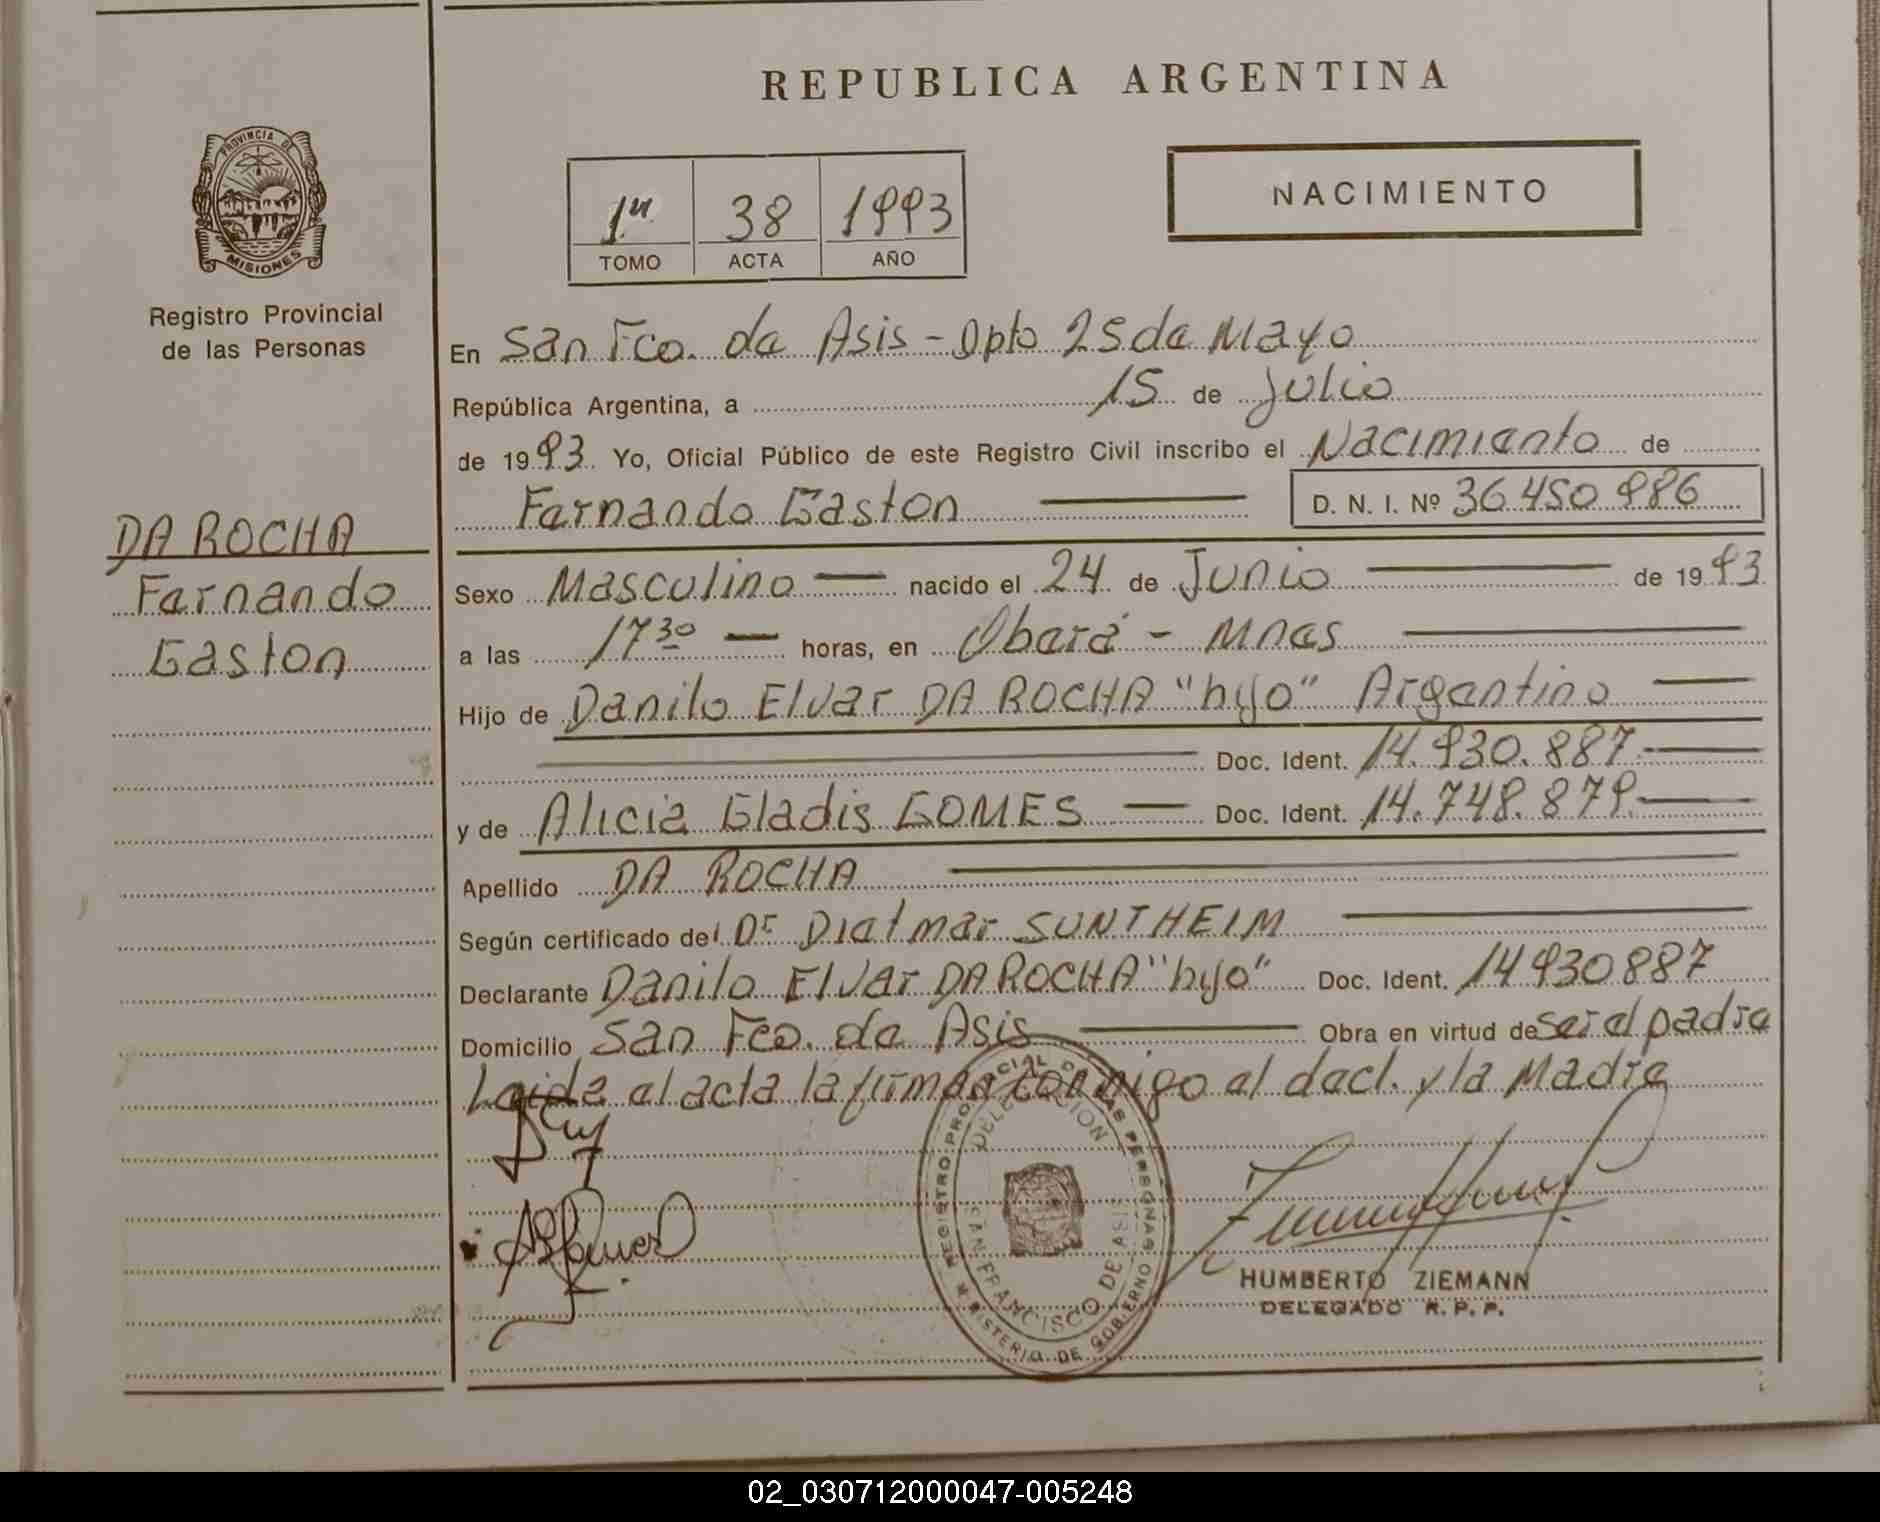 REPUBLICA ARGENTINA
PROVINCIA DE
MISIONES
Registro Provincial
de las Personas
1º 38 1993
TOMO ACTA AÑO
NACIMIENTO
En San Fco. de Asis - Dpto 25 de Mayo
República Argentina, a 15 de Julio
de 1993 Yo, Oficial Público de este Registro Civil inscribo el Nacimiento de
Fernando Gaston D. N. I. Nº 36.450.986
DA ROCHA
Fernando
Gaston
Sexo Masculino nacido el 24 de Junio de 1993
a las 17 30 horas, en Oberá - Mnes
Hijo de Danilo Elvar DA ROCHA "hijo" Argentino
Doc. Ident. 14.930.887
y de Alicia Gladis GOMES Doc. Ident. 14.748.879
Apellido DA ROCHA
Según certificado del Dr Dietmar SUNTHEIM
Declarante Danilo Elvar DA ROCHA "hijo" Doc. Ident. 14930887
Domicilio San Fco. de Asis Obra en virtud de ser el padre
Leida el acta la firman conmigo el decl. y la Madre
REGISTRO PROVINCIAL DE LAS PERSONAS
DELEGACION
SAN FRANCISCO DE ASIS
MINISTERIO DE GOBIERNO
HUMBERTO ZIEMANN
DELEGADO R. P. P.
02_030712000047-005248